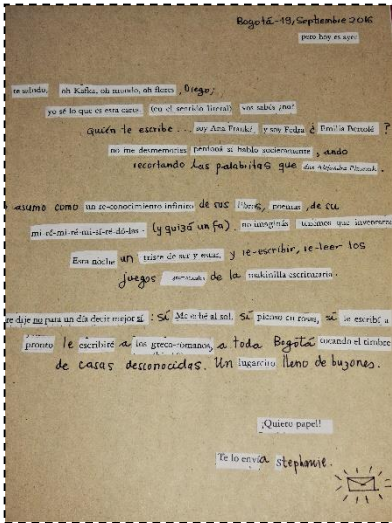 Bogotá-19, Septiembre 2016
pero hoy es ayer
te saludo, oh Kafka, oh mundo, oh flores, Diego;
yo sé lo que es esta carta (en el sentido literal) vos sabés ¿no?
quién te escribe... soy Ana Frank, y soy Fedra ó Emilia Bertolé ?
no me desmemorias perdoná si hablo suciamente, ando
recortando las palabritas que dice Alejandra Pizarnik.
asumo como un re-conocimiento infinito de sus libros, poemas, de su
mi-ré-mi-ré-mi-sí-ré-dó-las- (y quizá un fa). no imaginás tenemos que inventarnos
Esta noche un triste de mí y estas, y re-escribir, re-leer los
juegos de la makinilla escrituraria.
te dije no para un día decir mejor sí : sí Me bebé al sol. sí pienso en rosas, sí te escribí a
pronto le escribiré a los greco-romanos, a toda Bogotá tocando el timbre
de casas desconocidas. Un lugarcito lleno de buzones.
¡Quiero papel!
Te lo envía stephanie.